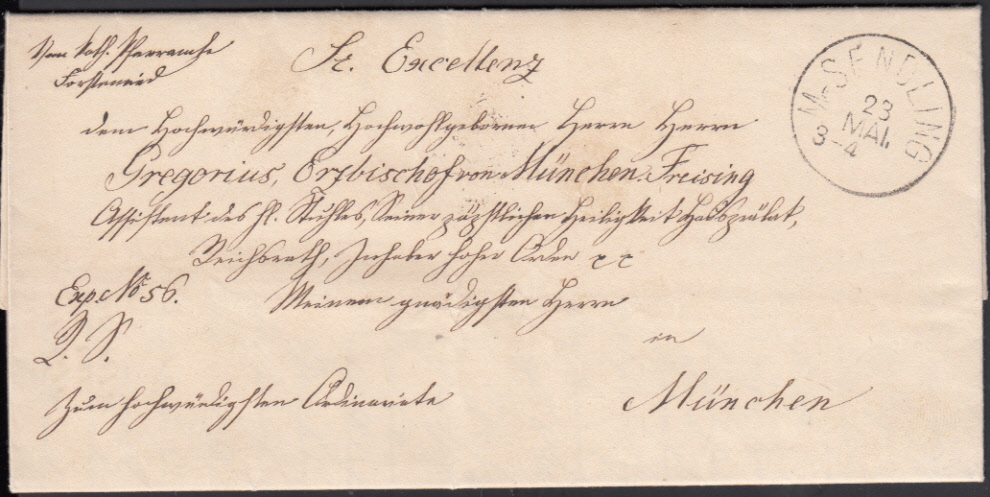 Vom kath. Pfarramte
Forstenried
Sr. Excellenz
dem Hochwürdigsten, Hochwohlgebornen Herrn Herrn
Gregorius, Erzbischof von München-Freising
Assistent des hl. Stuhles, Seiner päpstlichen Heiligkeit Hausprälat,
Reichsrath, Inhaber hoher Orden
Exp. No 56.
Meinem gnädigsten Herrn
in
Zum hochwürdigsten Ordinariate
München
M-SENDLING
23
MAI.
3-4